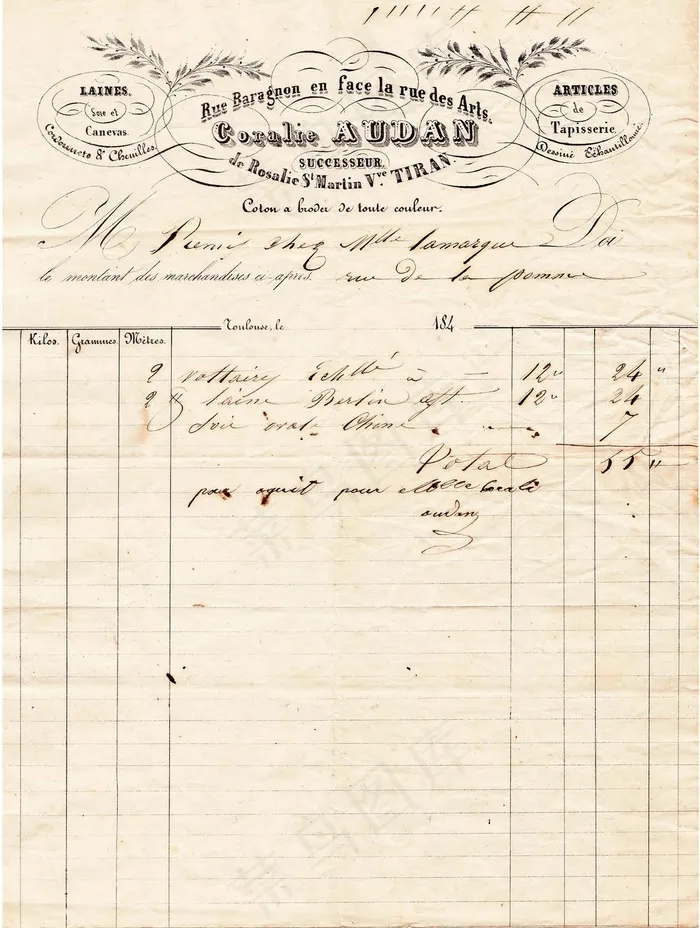 LAINES.
Soie et
Canevas.
Cordonnets & Chenilles.
Rue Baragnon en face la rue des Arts.
Coralie AUDAN
SUCCESSEUR,
de Rosalie St Martin Vve TIRAN.
ARTICLES
de
Tapisserie.
Dessiné Échantillonné.
Coton a broder de toute couleur.
M Remis chez Mlle Lamarque Doi
le montant des marchandises ci-après. rue de la pomme
Toulouse, le 184
Kilos. Grammes. Mètres.
2 à 12" 24 "
2 " laine Berlin 12" 24
Soie Chine 7
Total 55 "
pour aquit pour Melle Corali
audan
菜鸟图库
菜鸟图库